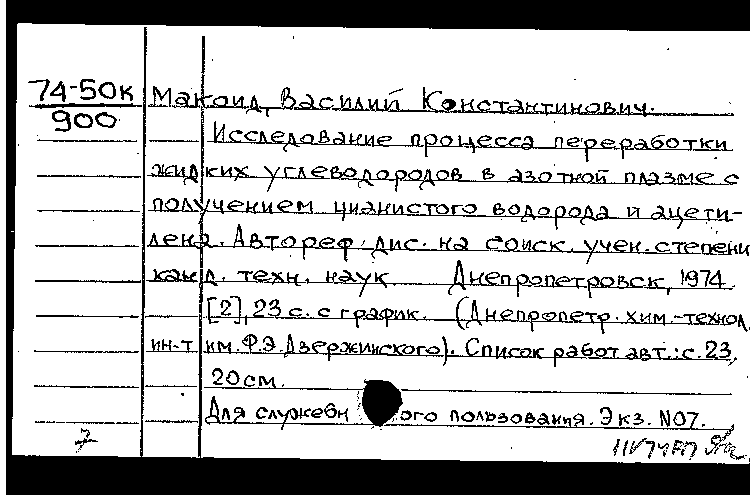 74-50к Макоид, Василий Константинович.
900
Исследование процесса переработки
жидких углеводородов в азотной плазме с
получением цианистого водорода и ацети-
лена. Автореф. дис. на соиск. учен. степени
канд. техн. наук. Днепропетровск, 1974.
[2], 23 с. с график. (Днепропетр. хим.-технол.
ин-т им. Ф.Э. Дзержинского). Список работ авт.: с. 23,
20 см.
Для служебн ого пользования. Экз. №07.